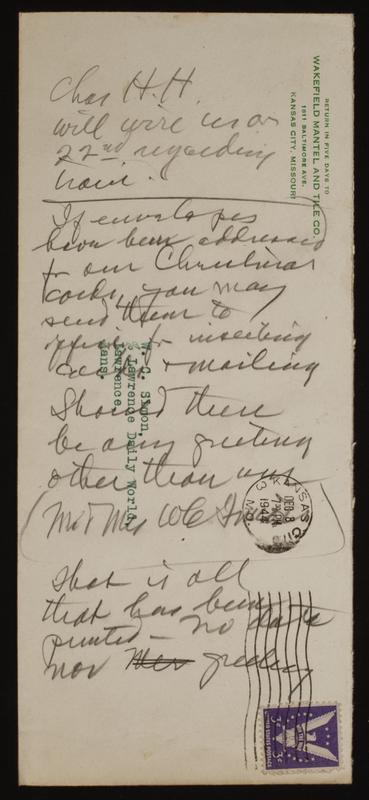 RETURN IN FIVE DAYS TO
WAKEFIELD MANTEL AND TILE CO.
1811 BALTIMORE AVE.
KANSAS CITY, MISSOURI
Chas H. H.
will wire us on
22nd regarding
hour.
If envelopes
have been addressed
for our Christmas
cards, you may
send them to
office for inserting
cards & mailing
Should there
be any greeting
other than our
Mr & Mrs WC
that is all
that has been
printed — no date
nor greeting
W. C. Simon,
Lawrence Daily World,
Lawrence,
Kans.
KANSAS CITY
DEC 8
1944
MO.
UNITED STATES POSTAGE
3¢ 3¢